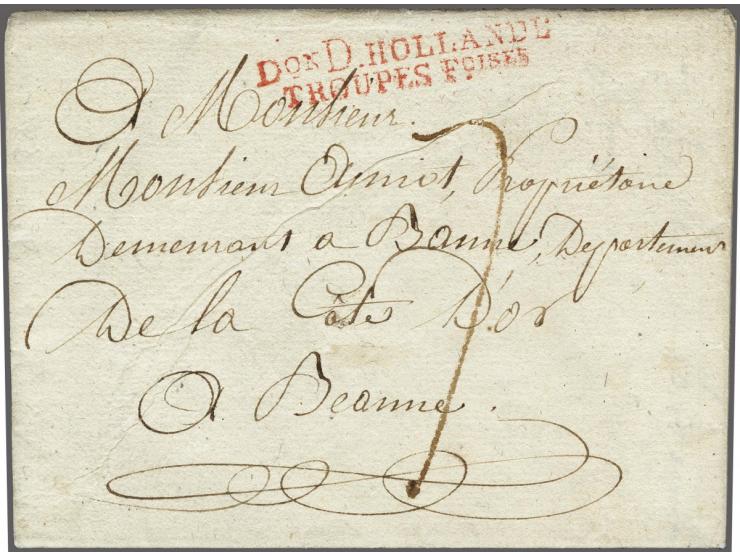 Don D. HOLLANDE
TROUPES Foises
A Monsieur.
Monsieur Amiot, Propriétaire
Demeurant a Baune, Departement
De la Côte D'or
A Beaune.
7